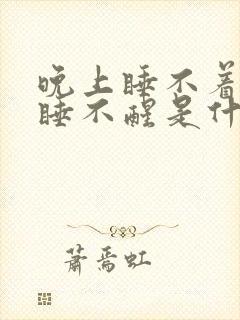 晚上睡不着
睡不醒是什
萧焉虹